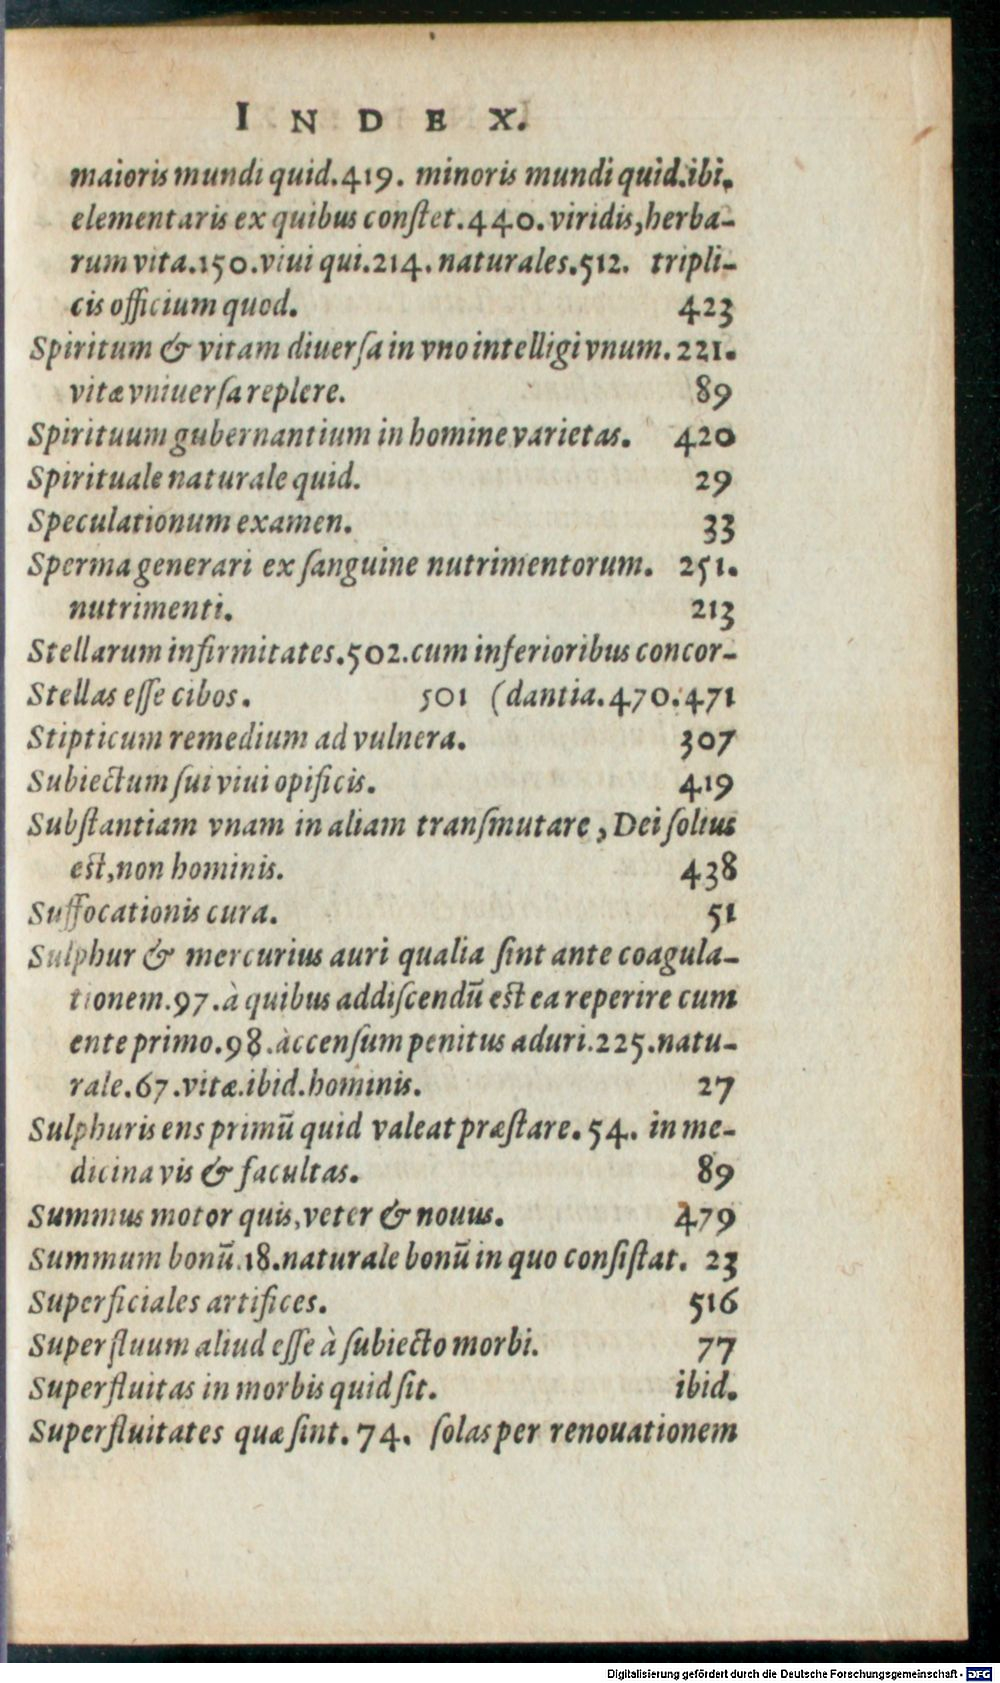 INDEX.
maioris mundi quid.419. minoris mundi quid.ibi.
elementaris ex quibus conſtet.440.viridis,herba-
rum vita.150.viui qui.214.naturales.512. tripli-
cis officium quod. 423
Spiritum & vitam diuerſa in vno intelligi vnum.221.
vitæ vniuerſa replere. 89
Spirituum gubernantium in homine varietas. 420
Spirituale naturale quid. 29
Speculationum examen. 33
Sperma generari ex ſanguine nutrimentorum. 251.
nutrimenti. 213
Stellarum infirmitates.502.cum inferioribus concor-
Stellas eſſe cibos. 501 (dantia.470.471
Stipticum remedium ad vulnera. 307
Subiectum ſui viui opificis. 419
Subſtantiam vnam in aliam tranſmutare, Dei ſolius
est,non hominis. 438
Suffocationis cura. 51
Sulphur & mercurius auri qualia ſint ante coagula-
tionem.97.à quibus addiſcendū est ea reperire cum
ente primo.98.àccenſum penitus aduri.225.natu-
rale.67.vitæ.ibid.hominis. 27
Sulphuris ens primū quid valeat præſtare.54. in me-
dicina vis & facultas. 89
Summus motor quis,veter & nouus. 479
Summum bonū.18.naturale bonū in quo conſiſtat. 23
Superficiales artifices. 516
Superfluum aliud eſſe à ſubiecto morbi. 77
Superfluitas in morbis quid ſit. ibid.
Superfluitates quæ ſint.74. ſolas per renouationem
Digitalisierung gefördert durch die Deutsche Forschungsgemeinschaft - DFG